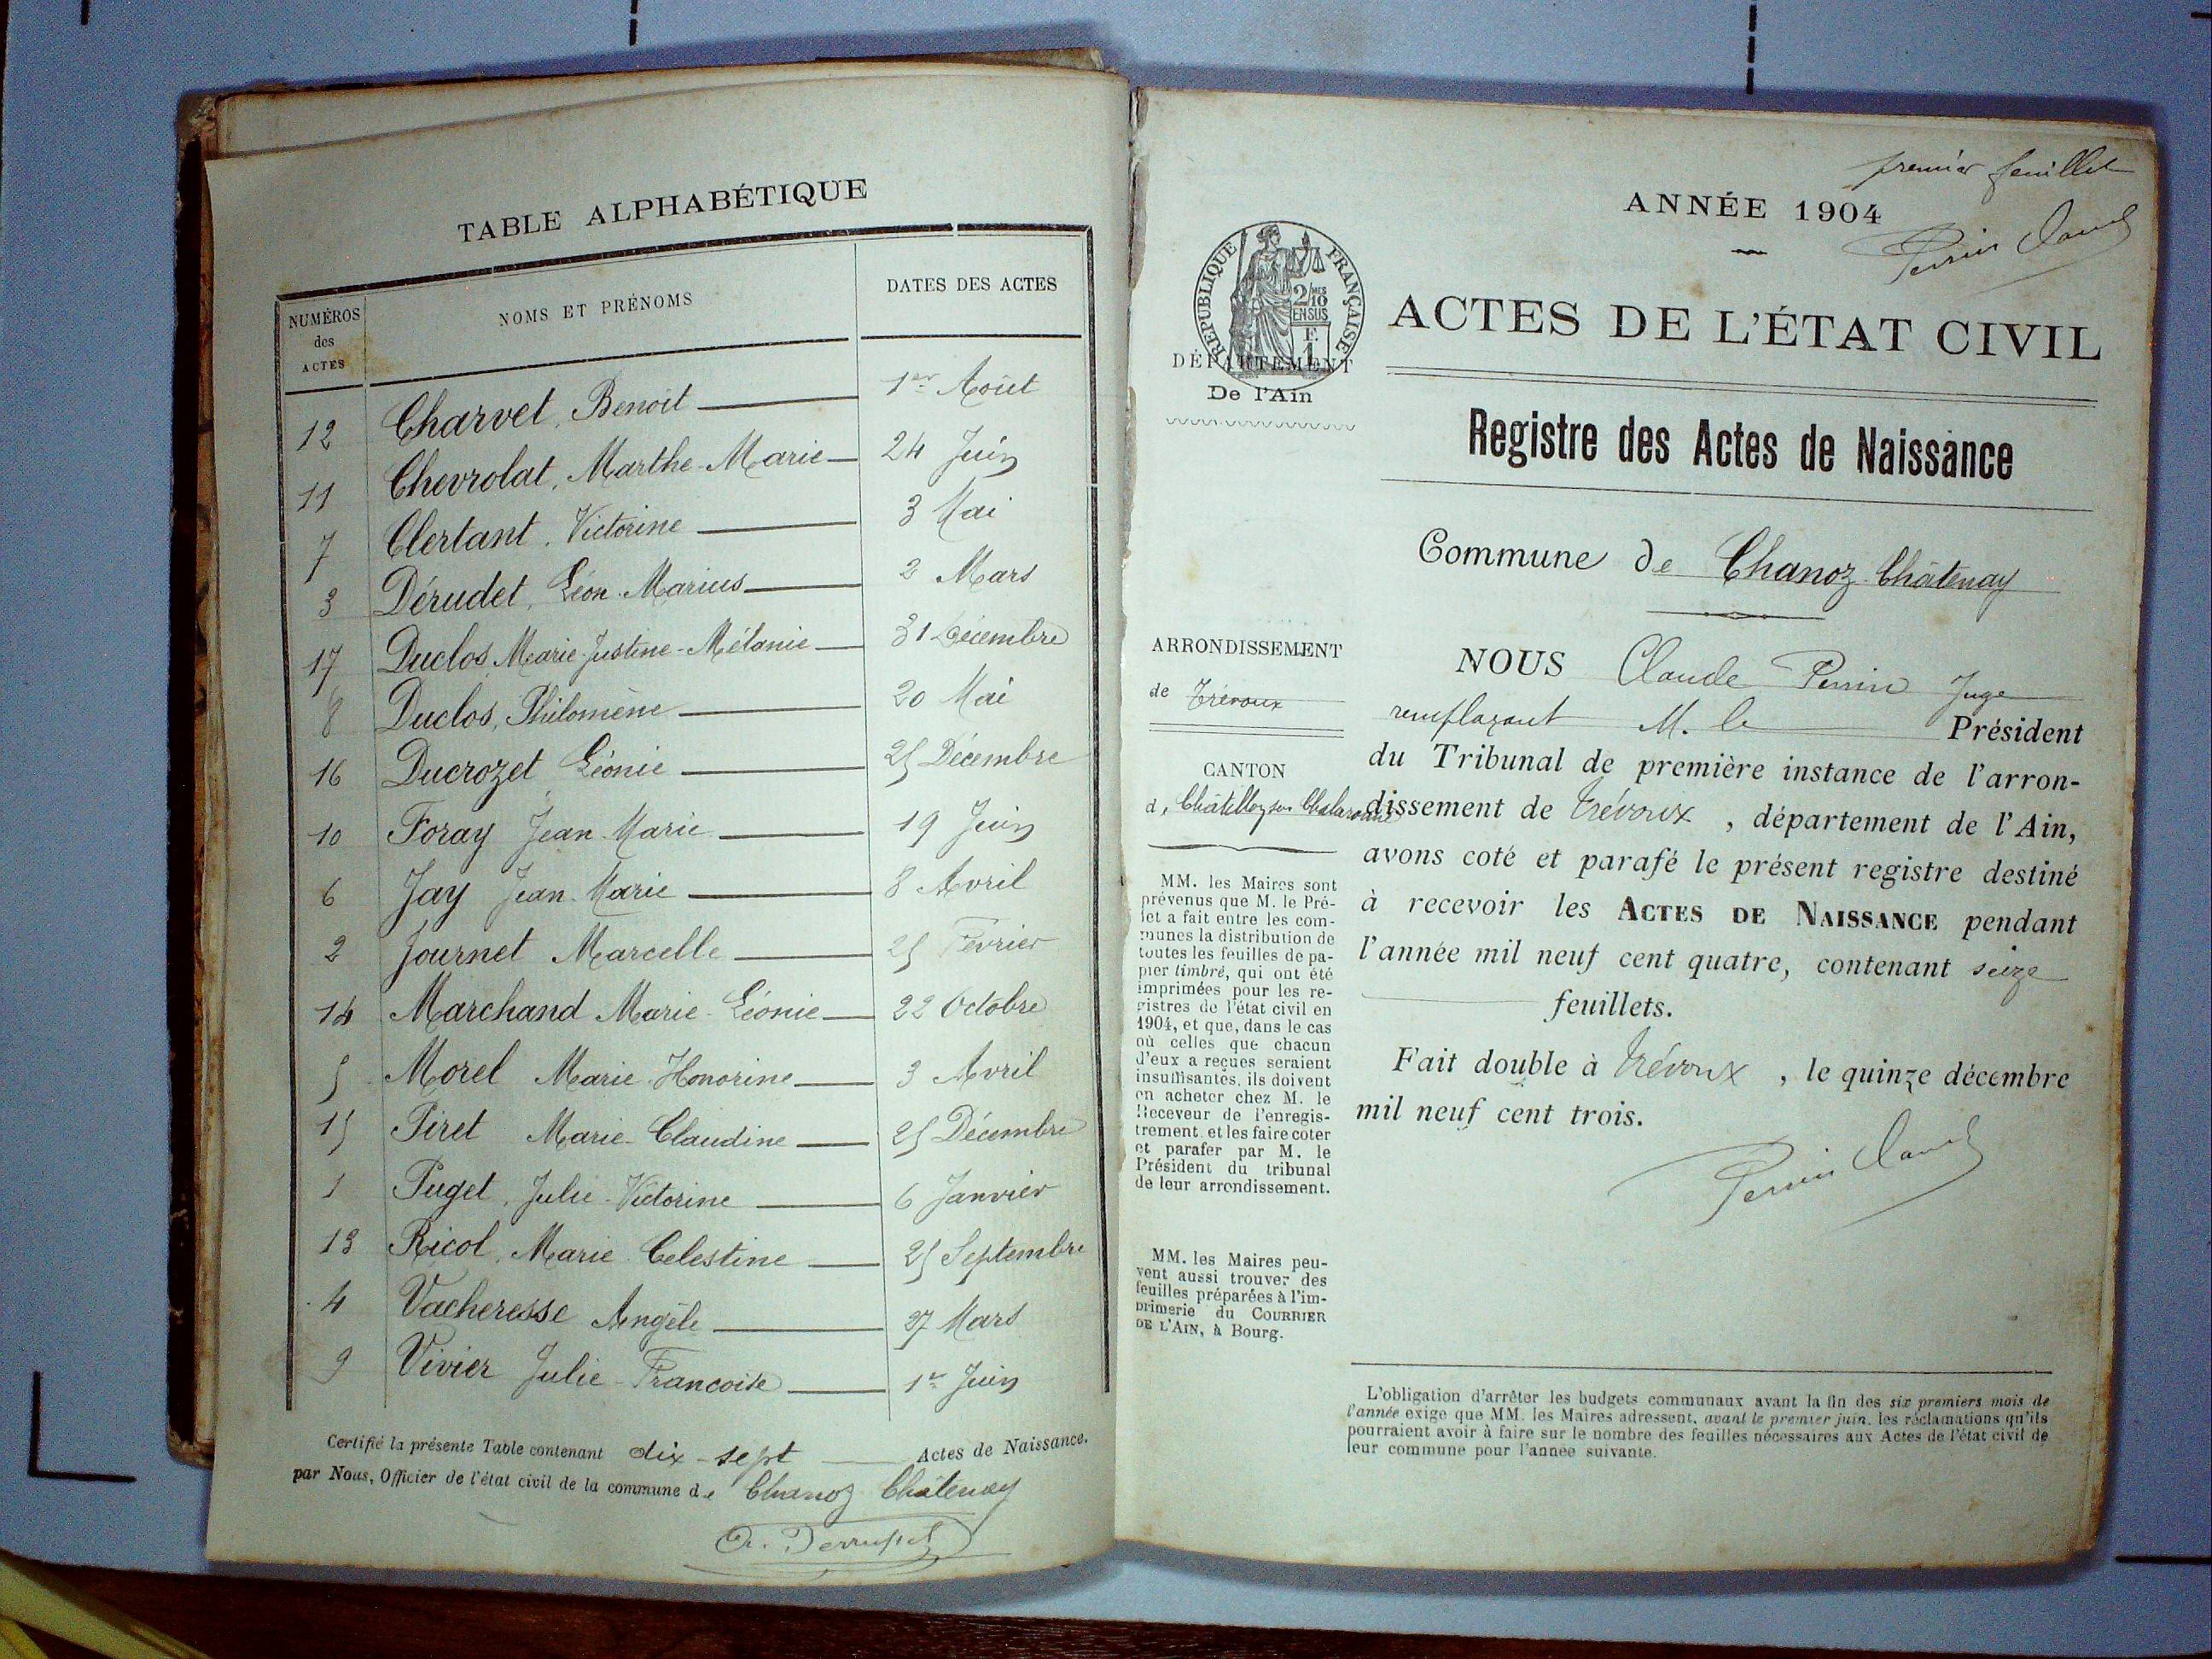 TABLE ALPHABÉTIQUE
NUMÉROS
des
ACTES
NOMS ET PRÉNOMS
DATES DES ACTES
12 Charvet, Benoit 1er Août
11 Chevrolat, Marthe-Marie 24 Juin
7 Clertant, Victorine 3 Mai
3 Dérudet, Léon-Marius 2 Mars
17 Duclos, Marie-Justine-Mélanie 31 Décembre
8 Duclos, Philomène 20 Mai
16 Ducrozet Léonie 25 Décembre
10 Foray Jean-Marie 19 Juin
6 Jay Jean-Marie 8 Avril
2 Journet Marcelle 25 Février
14 Marchand Marie-Léonie 22 Octobre
5 Morel Marie-Honorine 3 Avril
15 Piret Marie-Claudine 25 Décembre
1 Puget, Julie-Victorine 6 Janvier
13 Ricol, Marie Celestine 25 Septembre
4 Vacheresse Angèle 27 Mars
9 Vivier Julie-Francoise 1er Juin
Certifié la présente Table contenant dix-sept Actes de Naissance.
par Nous, Officier de l'état civil de la commune de Chanoz Châtenay
premier feuillet
ANNÉE 1904
Perrin Claude
RÉPUBLIQUE FRANÇAISE
2/10 MES
EN SUS
F.
1
DÉPARTEMENT
De l'Ain
ACTES DE L'ÉTAT CIVIL
Registre des Actes de Naissance
Commune de Chanoz-Châtenay
ARRONDISSEMENT
de Trévoux
CANTON
de Châtillon sur Chalaronne
MM. les Maires sont
prévenus que M. le Pré-
fet a fait entre les com-
munes la distribution de
toutes les feuilles de pa-
pier timbré, qui ont été
imprimées pour les re-
gistres de l'état civil en
1904, et que, dans le cas
où celles que chacun
d'eux a reçues seraient
insuffisantes, ils doivent
en acheter chez M. le
Receveur de l'enregis-
trement et les faire coter
et parafer par M. le
Président du tribunal
de leur arrondissement.
MM. les Maires peu-
vent aussi trouver des
feuilles préparées à l'im-
primerie du COURRIER
DE L'AIN, à Bourg.
NOUS Claude Perrin Juge
remplaçant M. le Président
du Tribunal de première instance de l'arron-
dissement de Trévoux, département de l'Ain,
avons coté et parafé le présent registre destiné
à recevoir les ACTES DE NAISSANCE pendant
l'année mil neuf cent quatre, contenant seize
feuillets.
Fait double à Trévoux, le quinze décembre
mil neuf cent trois.
Perrin Claude
L'obligation d'arrêter les budgets communaux avant la fin des six premiers mois de
l'année exige que MM. les Maires adressent, avant le premier juin, les réclamations qu'ils
pourraient avoir à faire sur le nombre des feuilles nécessaires aux Actes de l'état civil de
leur commune pour l'année suivante.